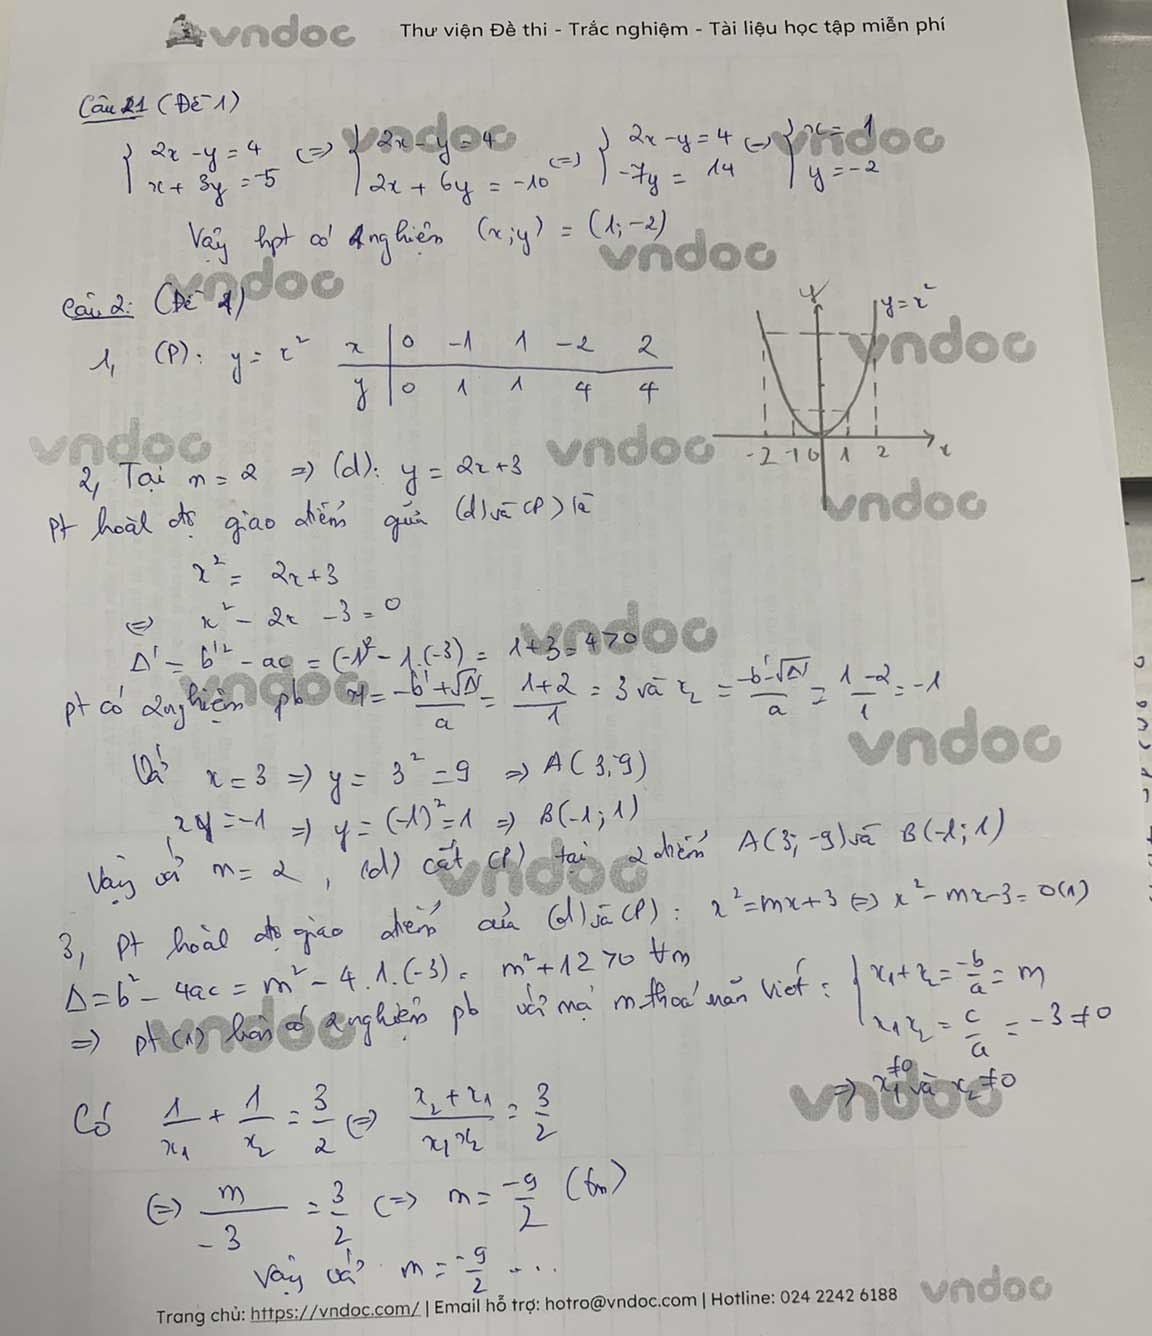 vndoc Thư viện Đề thi - Trắc nghiệm - Tài liệu học tập miễn phí
Câu 1 (Đề 1)
{ 2x - y = 4 ; x + 3y = -5 <=> { 2x - y = 4 ; 2x + 6y = -10 <=> { 2x - y = 4 ; -7y = 14 <=> { x = 1 ; y = -2
Vậy hpt có 1 nghiệm (x;y) = (1;-2)
Câu 2: (Đề 1)
1, (P): y = x²
x | 0 -1 1 -2 2
y | 0 1 1 4 4
y y = x²
-2 -1 0 1 2 x
2, Tại m = 2 => (d): y = 2x+3
pt hoành độ giao điểm của (d) và (P) là
x² = 2x+3
<=> x² - 2x - 3 = 0
Δ' = b'² - ac = (-1)² - 1.(-3) = 1+3 = 4 > 0
pt có 2 nghiệm pb x1 = (-b'+√Δ')/a = (1+2)/1 = 3 và x2 = (-b'-√Δ')/a = (1-2)/1 = -1
Với x = 3 => y = 3² = 9 => A(3;9)
x = -1 => y = (-1)² = 1 => B(-1;1)
Vậy với m = 2, (d) cắt (P) tại 2 điểm A(3;-9) và B(-1;1)
3, pt hoành độ giao điểm của (d) và (P): x² = mx+3 <=> x² - mx - 3 = 0 (1)
Δ = b² - 4ac = m² - 4.1.(-3) = m² + 12 > 0 ∀m
=> pt (1) luôn có 2 nghiệm pb với mọi m thoả mãn Viét: { x1 + x2 = -b/a = m ; x1x2 = c/a = -3 ≠ 0
=> x1 ≠ 0 và x2 ≠ 0
Có 1/x1 + 1/x2 = 3/2 <=> (x2 + x1)/(x1x2) = 3/2
<=> m/-3 = 3/2 <=> m = -9/2 (tm)
Vậy với m = -9/2 ...
Trang chủ: https://vndoc.com/ | Email hỗ trợ: hotro@vndoc.com | Hotline: 024 2242 6188 vndoc